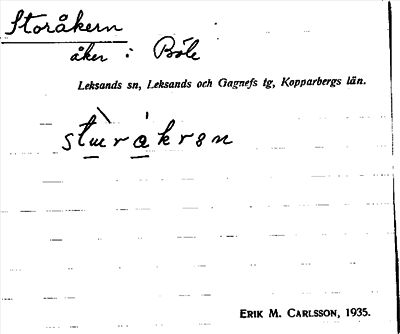 Storåkern
åker i Böle
Leksands sn, Leksands och Gagnefs tg, Kopparbergs län.
ERIK M. CARLSSON, 1935.